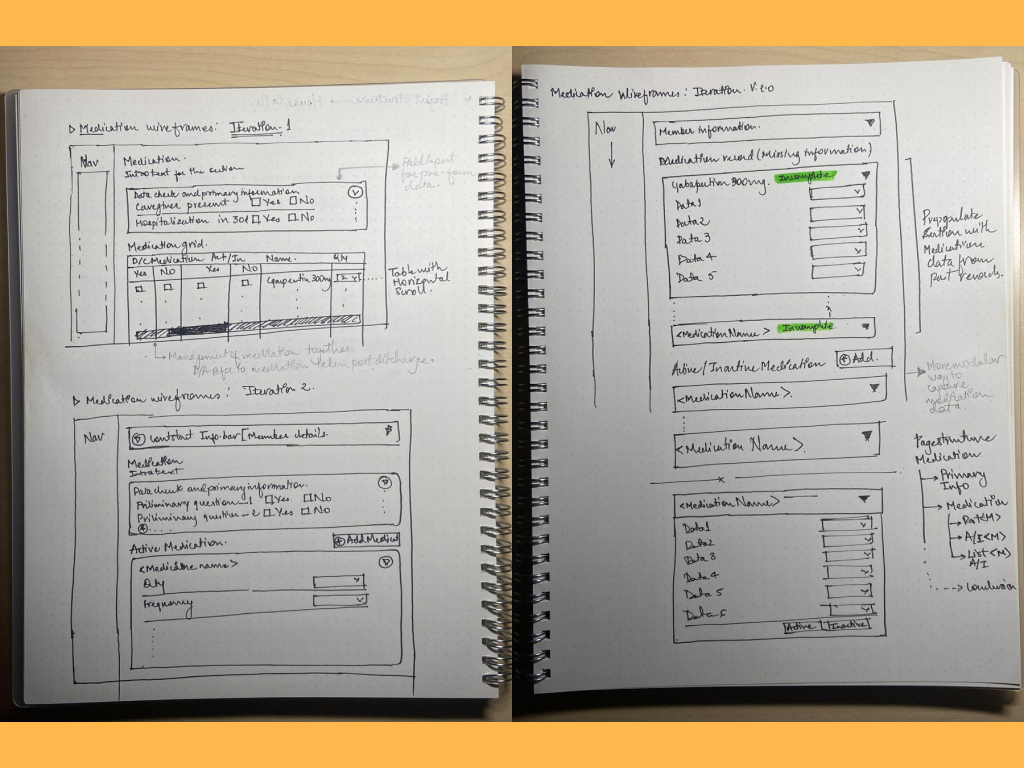 Medication wireframes: Iteration. 1
Nav
Medication.
Introtext for the section
Data check and primary information
Caregiver present Yes No
Hospitalization in 30d Yes No
for pre-
data.
Medication grid.
D/C Medication Act/In Name. Qty
Yes No Yes No
Gabapentin 300mg 2
Table with
Horizontal
Scroll.
Management of mediation together.
to medication taken post discharge.
Medication wireframes: Iteration 2.
Nav
Constant Info.bar [Member details.
Medication
Introtext
Data check and primary information.
Priliminary question -1 Yes No
Priliminary question -2 Yes No
Active Medication.
Add Medicat
<Medicine name>
Qty
Frequency
Medication Wireframes: Iteration. V.2.0
Nav
Member information.
Medication record (Missing information)
Gabapentin 300mg. Incomplete
Data1
Data2
Data 3
Data 4
Data 5
Prepopulate
section with
Medication
data from
past records.
<Medication Name> Incomplete
Active/Inactive Medication
Add.
<Medication Name>.
<Medication Name>.
More modular
way to
capture
medication
data.
Page structure
Medication
Primary
Info
Medication
Past<M>
A/I<M>
List <M>
A/I
Conclusion
<Medication Name>
Data1
Data2
Data 3
Data 4
Data 5
Data 6
Active Inactive